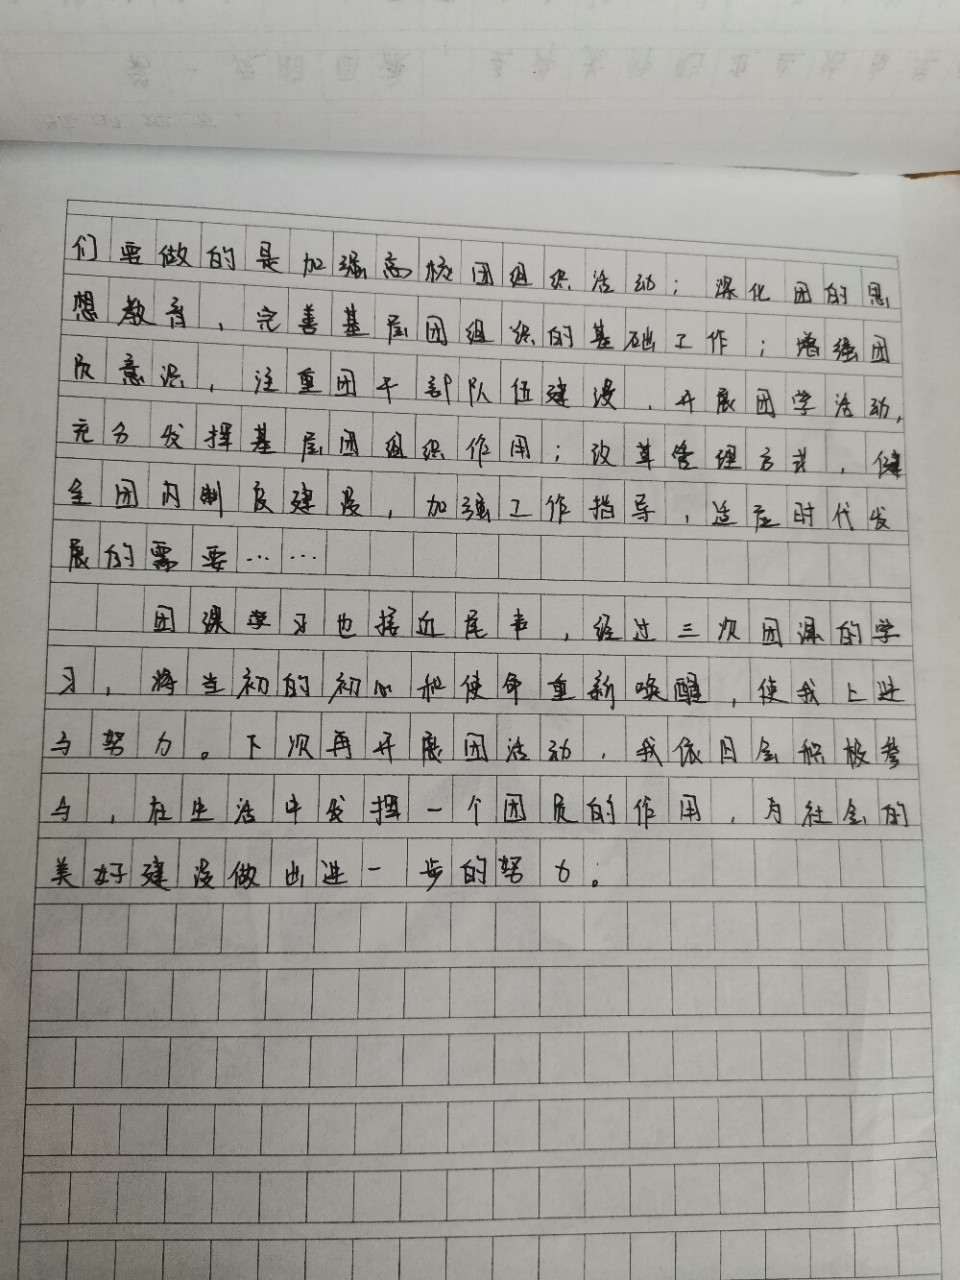 们要做的是加强高校团组织活动；深化团的思
想教育，完善基层团组织的基础工作；增强团
员意识，注重团干部队伍建设，开展团学活动，
充分发挥基层团组织作用；改革管理方式，健
全团内制度建设，加强工作指导，适应时代发
展的需要……
团课学习也接近尾声，经过三次团课的学
习，将当初的初心和使命重新唤醒，使我上进
与努力。下次再开展团活动，我依旧会积极参
与，在生活中发挥一个团员的作用，为社会的
美好建设做出进一步的努力。